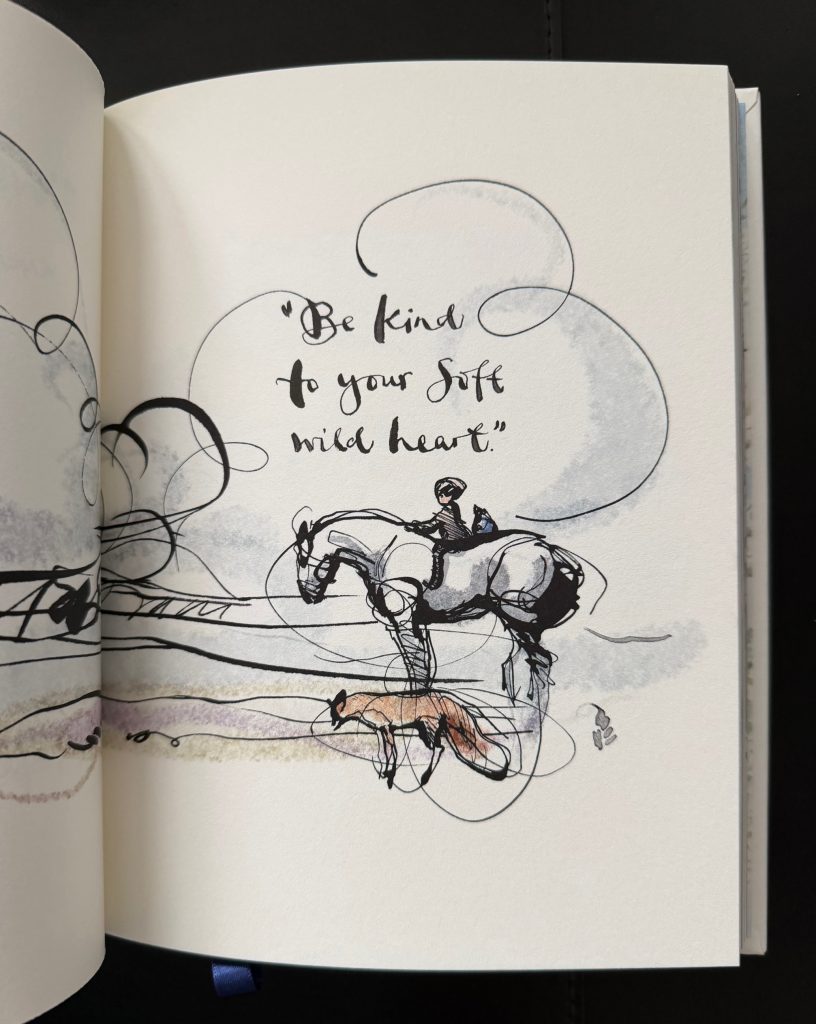 "Be kind
to your soft
wild heart."